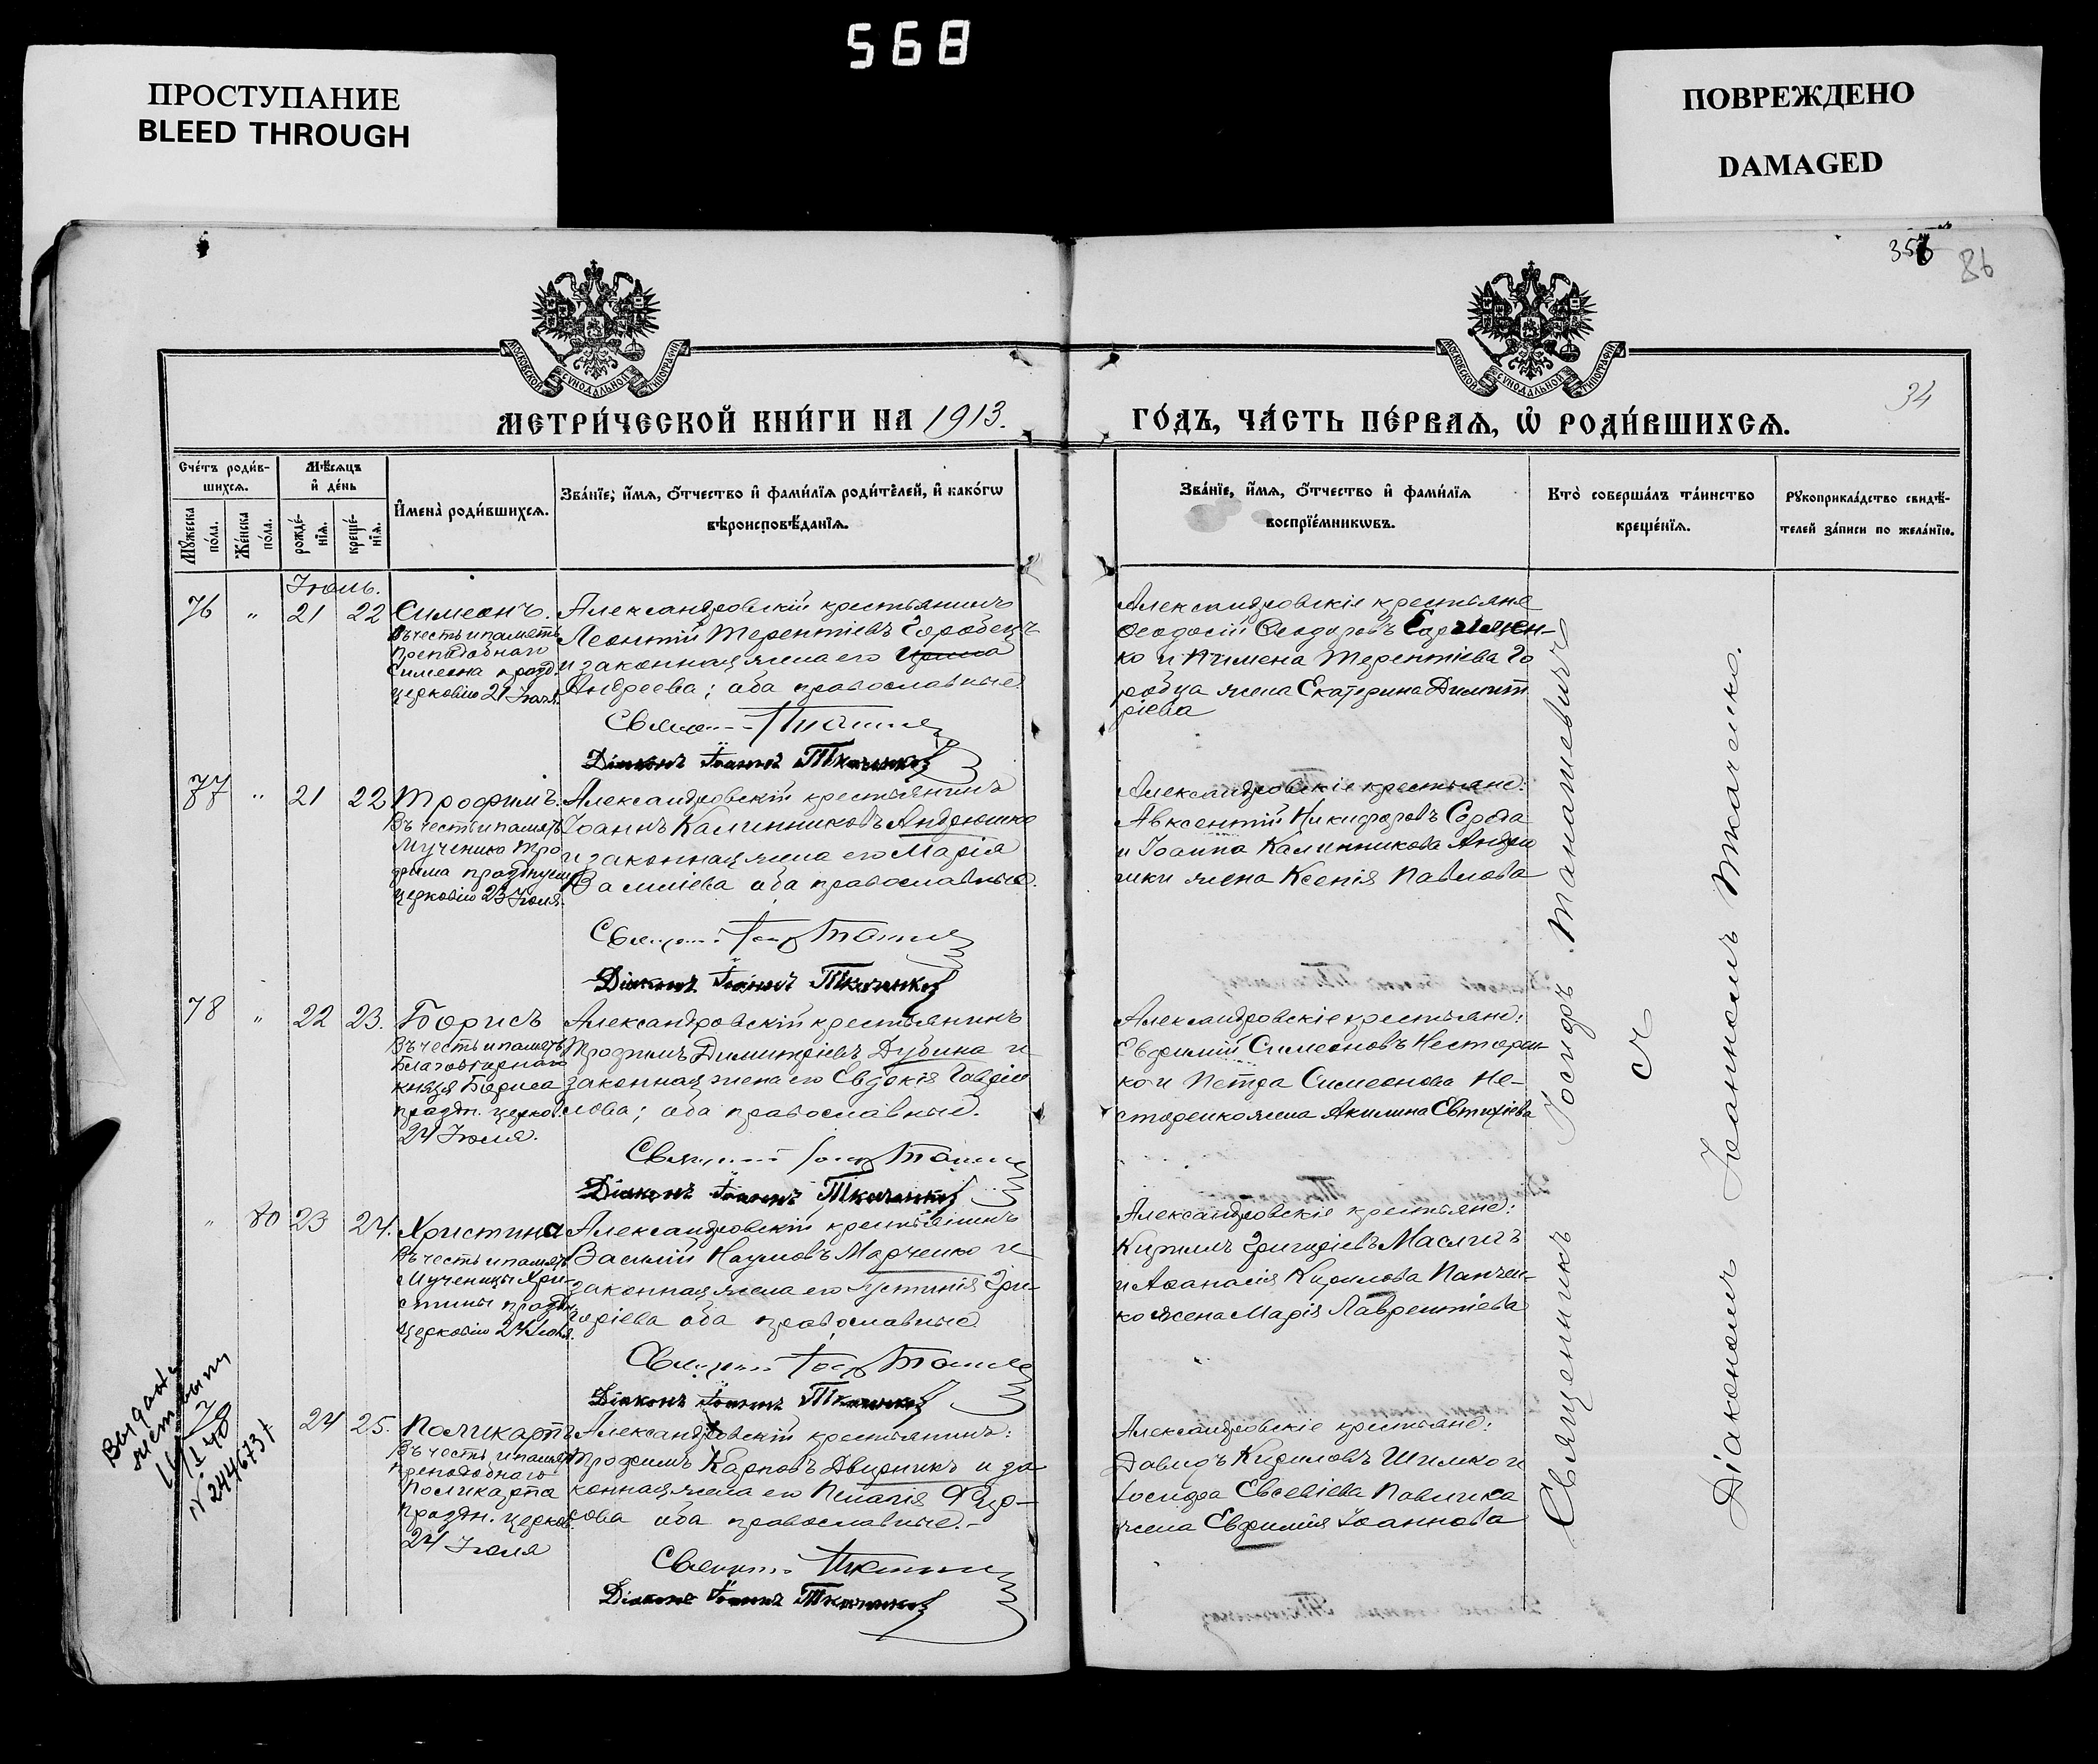 568
ПРОСТУПАНИЕ
BLEED THROUGH
ПОВРЕЖДЕНО
DAMAGED
86
34
МОСКОВСКОЙ СѴНОДАЛЬНОЙ ТИПОГРАФІИ
МОСКОВСКОЙ СѴНОДАЛЬНОЙ ТИПОГРАФІИ
МЕТРИ́ЧЕСКОЙ КНИ́ГИ НА 1913.
ГО́ДЪ, ЧА́СТЬ ПЕ́РВАѦ, Ѡ҆ РОДИ́ВШИХСѦ.
Сче́тъ роди́в-
шихсѧ.
Мꙋжеска по́ла.
Же́нска по́ла.
Мѣ́сѧцъ
и҆ де́нь
рожде́-
нїѧ.
креще́-
нїѧ.
И҆мена̀ роди́вшихсѧ.
Зва́нїе, и҆́мѧ, ѻ҆́тчество и҆ фами́лїѧ роди́телей, и҆ како́гѡ
вѣроисповѣ́данїѧ.
Зва́нїе, и҆́мѧ, ѻ҆́тчество и҆ фами́лїѧ
воспрїе́мникѡвъ.
Кто̀ соверша́лъ та́инство
креще́нїѧ.
Рꙋкоприкла́дство свидѣ́-
телей за́писи по жела́нїю.
Іюль.
76 " 21 22 Симеонъ.
Въ честь и память
преподобнаго
Симеона празд.
церковію 21 Іюля.
Александровскій крестьянинъ
Леонтій Терентіевъ Горобецъ
и законная жена его Ирина
Андреева; оба православные.
Діаконъ Іоаннъ Ткаченко
Александровскіе крестьяне
Ѳеодосій Ѳеодоровъ
ко и Пимена Терентіева Го
робца жена Екатерина Димит
ріева
77 " 21 22 Трофимъ.
Въ честь и память
Мученика Тро
фима празднуем.
церковію 23 Іюля.
Александровскій крестьянинъ
Іоаннъ Калинниковъ Андрюшко
и законная жена его Марія
оба православные.
Діаконъ Іоаннъ Ткаченко
Александровскіе крестьяне:
Авксентій Никифоровъ
и Іоанна Калинникова Андрю
шки жена Ксенія Павлова
78 " 22 23. Борисъ
Въ честь и память
Благовѣрнаго
князя Бориса
праздн. церков.
24 Іюля.
Александровскій крестьянинъ
Трофимъ Димитріевъ Дубина и
законная жена его Евдокія Гаврі
лова; оба православные.
Діаконъ Іоаннъ Ткаченко
Александровскіе крестьяне:
Евфимій Симеоновъ Нестерен-
ко и Петра Симеонова Не-
стеренко жена Акилина Евтихіева
" 80 23 24. Христина
Въ честь и память
Мученицы Хри-
стины праздн.
церковію 24 Іюля.
Александровскій крестьянинъ
Василій Наумовъ Марченко и
законная жена его Іустинія Гри-
горіева оба православные
Діаконъ Іоаннъ Ткаченко
Александровскіе крестьяне:
Кириллъ Григоріевъ Маслич
и Аѳанасія Кирилова Панчен-
ко жена Марія Лаврентіева
24 25. Поликарпъ
Въ честь и память
преподобнаго
Поликарпа
праздн. церков.
24 Іюля
Александровскій крестьянинъ:
Трофимъ Карповъ Дворникъ и за
конная жена его Пелагія
оба православные.
Діаконъ Іоаннъ Ткаченко
Александровскіе крестьяне:
Давидъ Кириловъ Шимко и
Іосифа Евсевіева Павлика
жена Евфимія Іоаннова
Священникъ Іосифъ Танатевичъ
съ
Діакономъ Іоанномъ Ткаченко.
Выдано
№ 244673